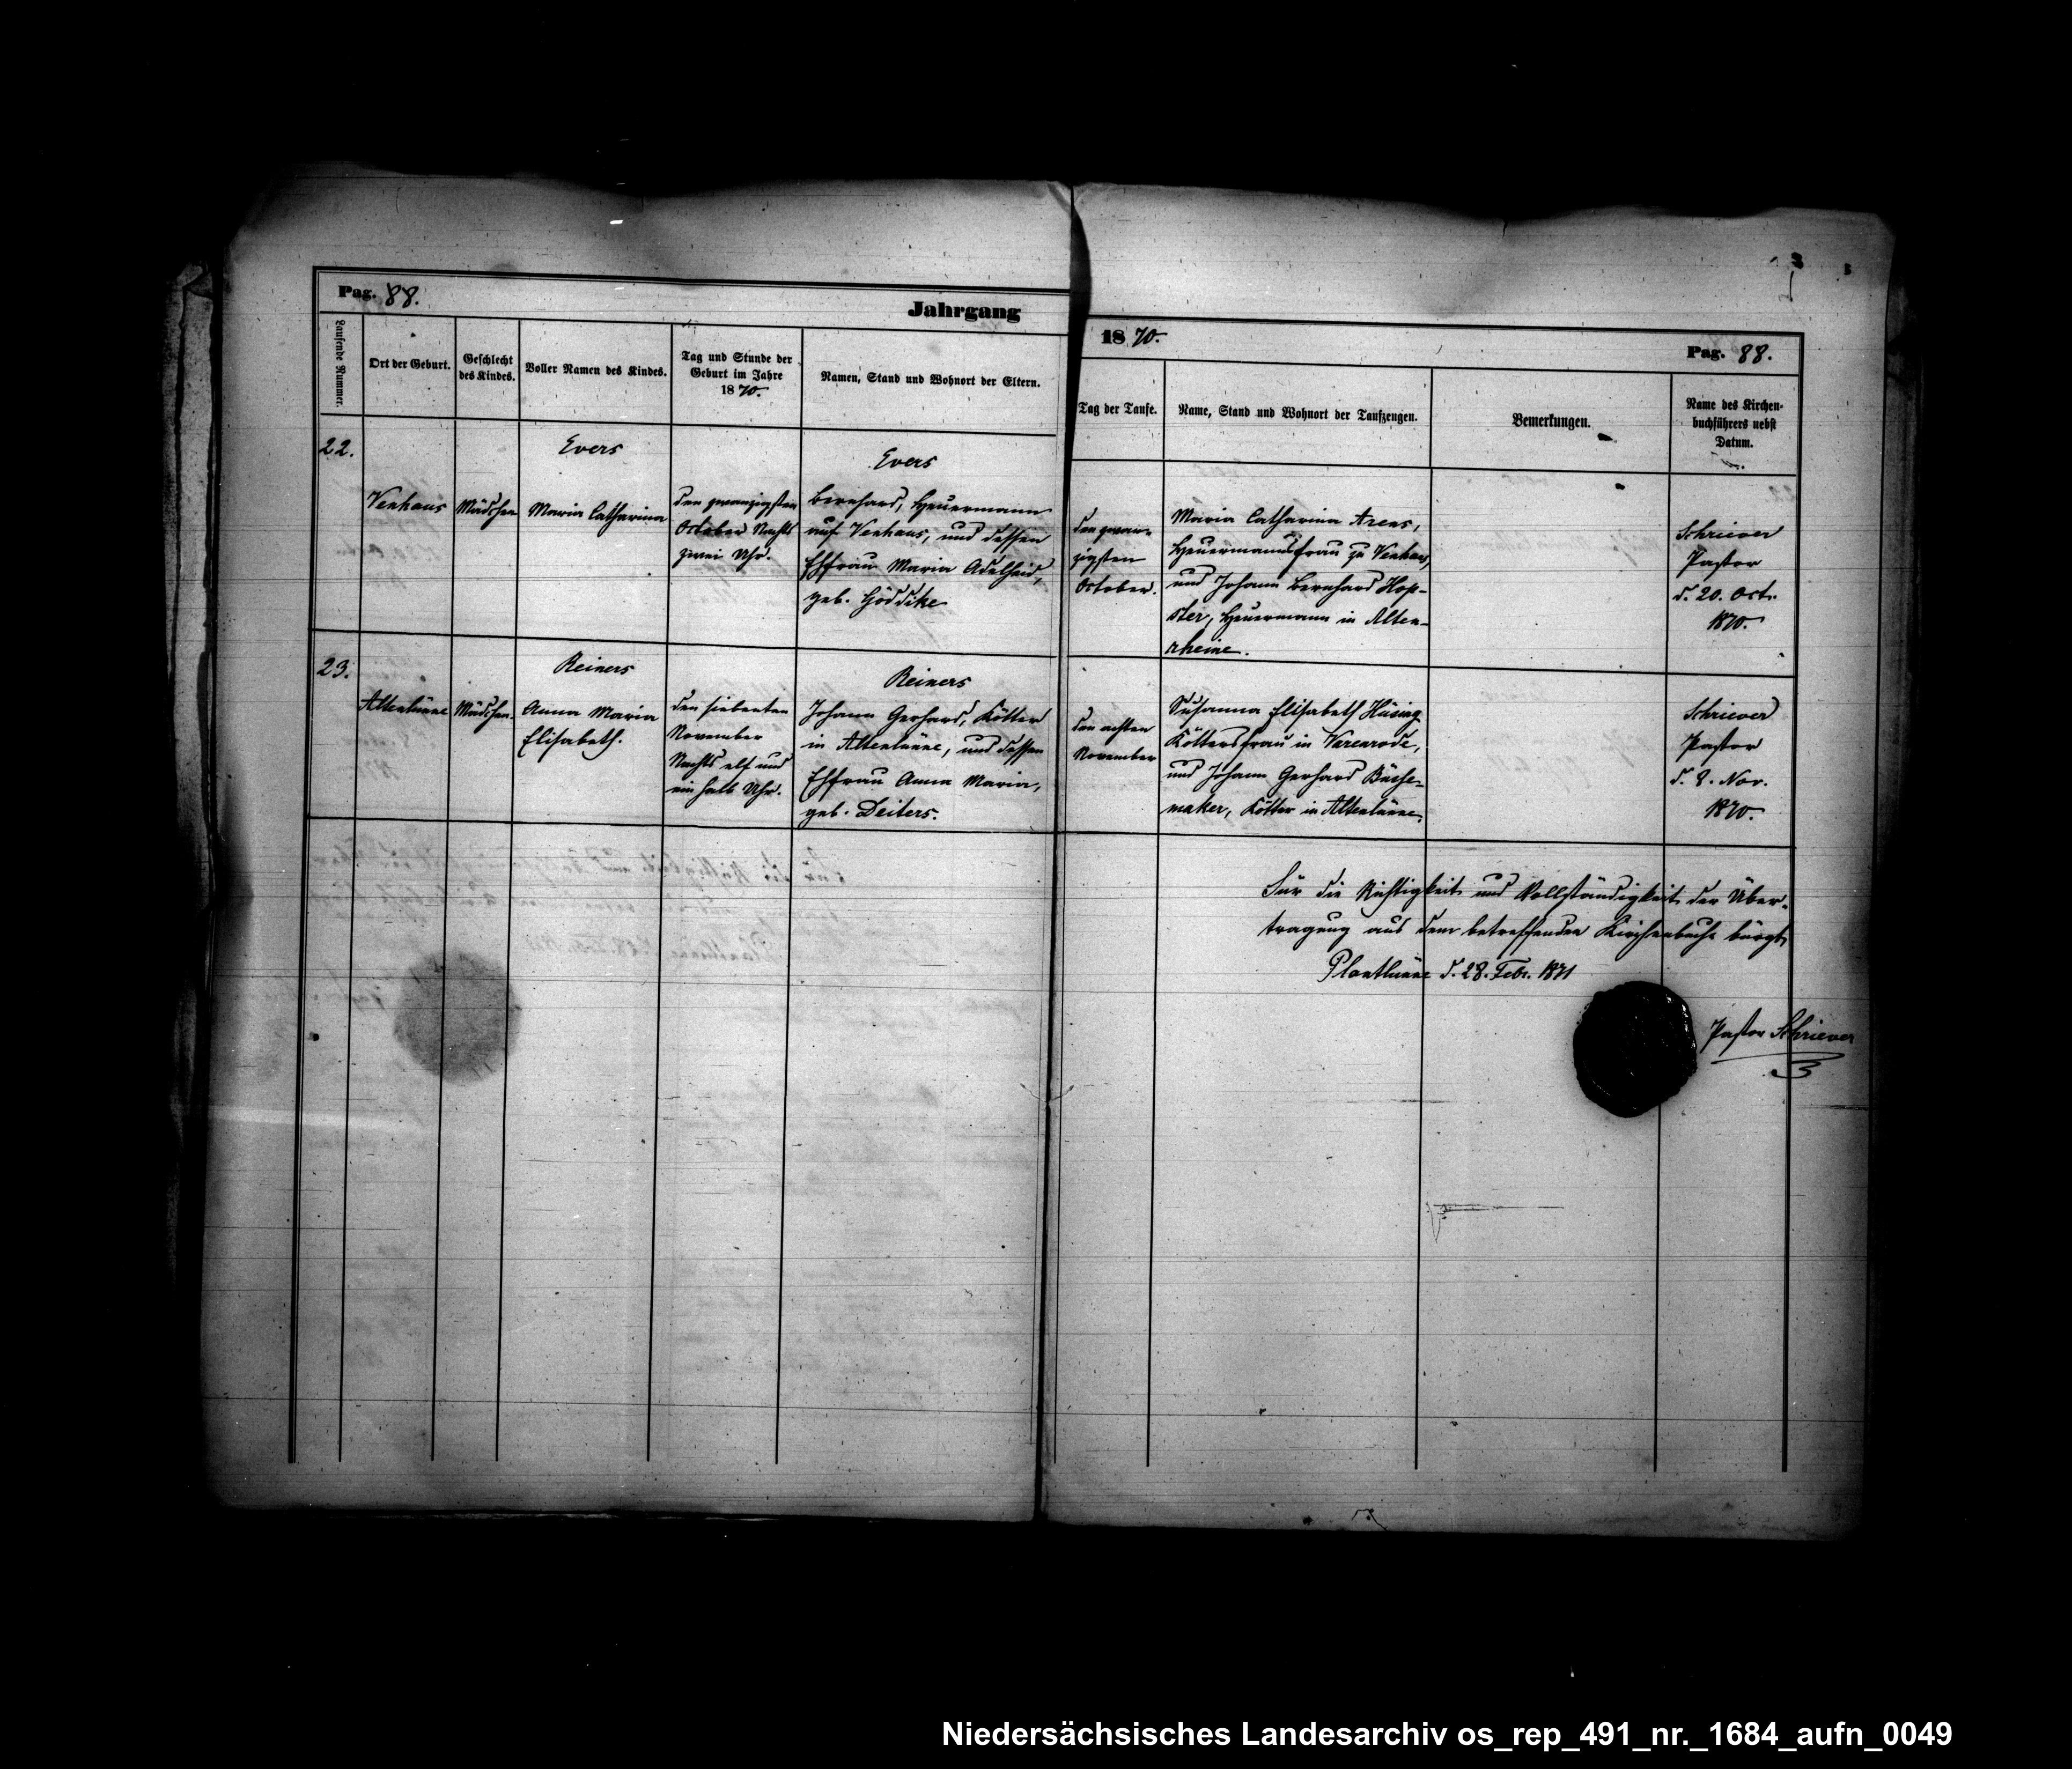 Pag. 88.
Jahrgang
1870.
Pag. 88.
Laufende Nummer.
Ort der Geburt.
Geschlecht
des Kindes.
Voller Namen des Kindes.
Tag und Stunde der
Geburt im Jahre
1870.
Namen, Stand und Wohnort der Eltern.
Tag der Taufe.
Name, Stand und Wohnort der Taufzeugen.
Bemerkungen.
Name des Kirchen-
buchführers nebst
Datum.
22.
Venhaus
Mädchen
Evers
Maria Catharina
den zwanzigsten
October Nachts
zwei Uhr.
Evers
Bernhard, Heuermann
auf Venhaus, und dessen
Ehfrau Maria Adelheid,
geb. Göddike
den zwan-
zigsten
October.
Maria Catharina Arens,
Heuermannsfrau zu Venhaus,
und Johann Bernhard Hop-
ster, Heuermann in Alten-
rheine.
Schriever
Pastor
d. 20. Oct.
1870.
23.
Altenlünne
Mädchen.
Reiners
Anna Maria
Elisabeth.
den siebenten
November
Nachts elf und
ein halb Uhr.
Reiners
Johann Gerhard, Kötter
in Altenlünne, und dessen
Ehfrau Anna Maria,
geb. Deiters.
den achten
November
Susanna Elisabeth Hüsing
Köttersfrau in Varenrode,
und Johann Gerhard Büsche-
maker, Kötter in Altenlünne.
Schriever
Pastor
d. 8. Nov.
1870.
Für die Richtigkeit und Vollständigkeit der Über-
tragung aus dem betreffenden Kirchenbuche bürgt
Plantlünne d. 28. Febr. 1871
Pastor Schriever
Niedersächsisches Landesarchiv os_rep_491_nr._1684_aufn_0049